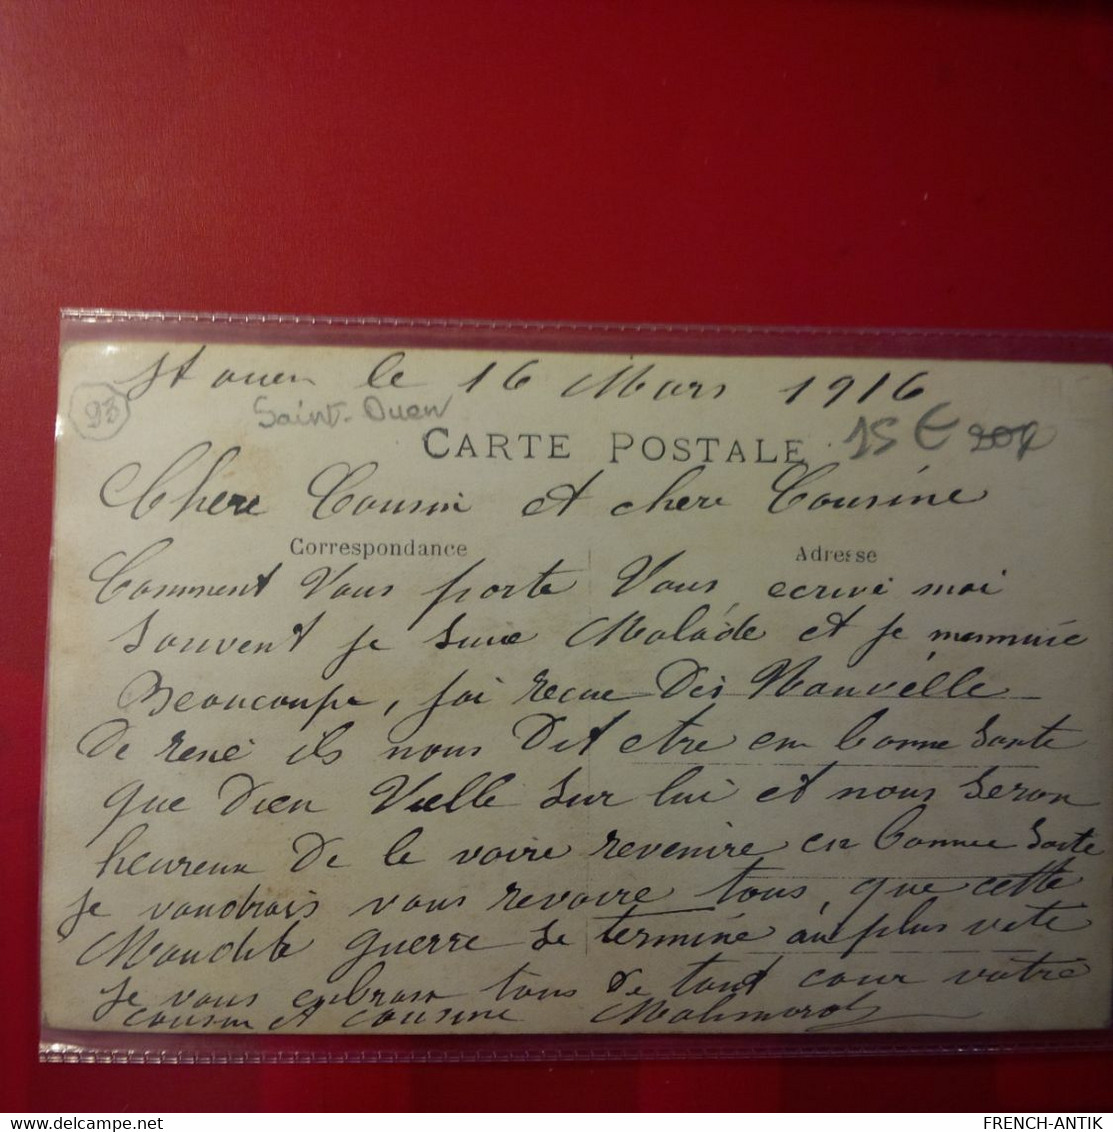 St ouen le 16 Mars 1916
93
Saint-Ouen
CARTE POSTALE
15 € 20€
Chère Cousin et chere Cousine
Correspondance
Adresse
Comment Vous porte Vous ecrivé moi
souvent je suue Malade et je mennuie
Beaucoupe, jai recue Des Nauvélle
De rené ils nous Dit etre en bonne sante
que Dieu Vielle sur lui et nous seron
heureux De le voire revenire en bonne sante
je voudrais vous revoire tous, que cette
Maudite guerre se terminé au plus vite
je vous enbrasse tous De tout cour vôtre
cousin et cousine
FRENCH-ANTIK